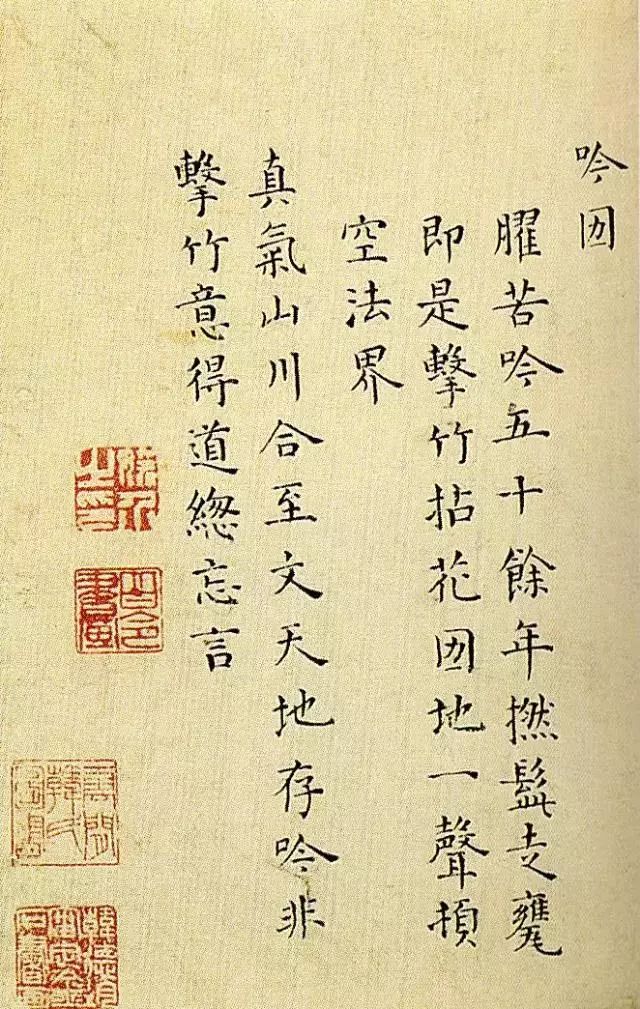 吟㘞
臞苦吟五十餘年撚髭走甕
即是擊竹拈花㘞地一聲頓
空法界
真氣山川合至文天地存吟非
擊竹意得道緫忘言